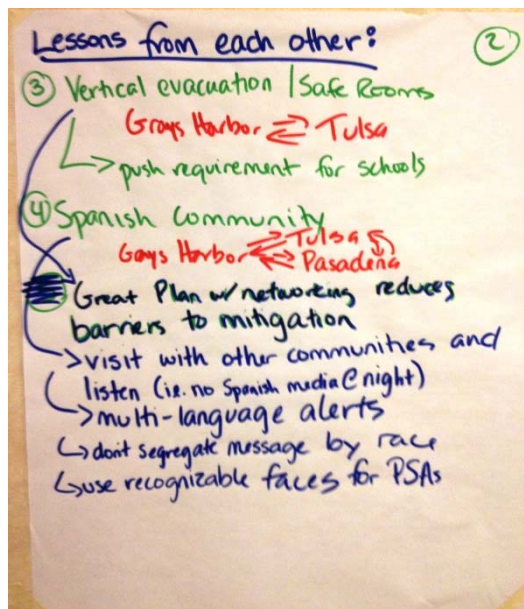 Lessons from each other: 2
3 Vertical evacuation / Safe Rooms
Grays Harbor Tulsa
push requirement for schools
4 Spanish Community
Grays Harbor Tulsa
Pasadena
Great Plan w/ networking reduces
barriers to mitigation
visit with other communities and
listen (i.e. no Spanish media @ night)
multi-language alerts
don't segregate message by race
use recognizable faces for PSAs